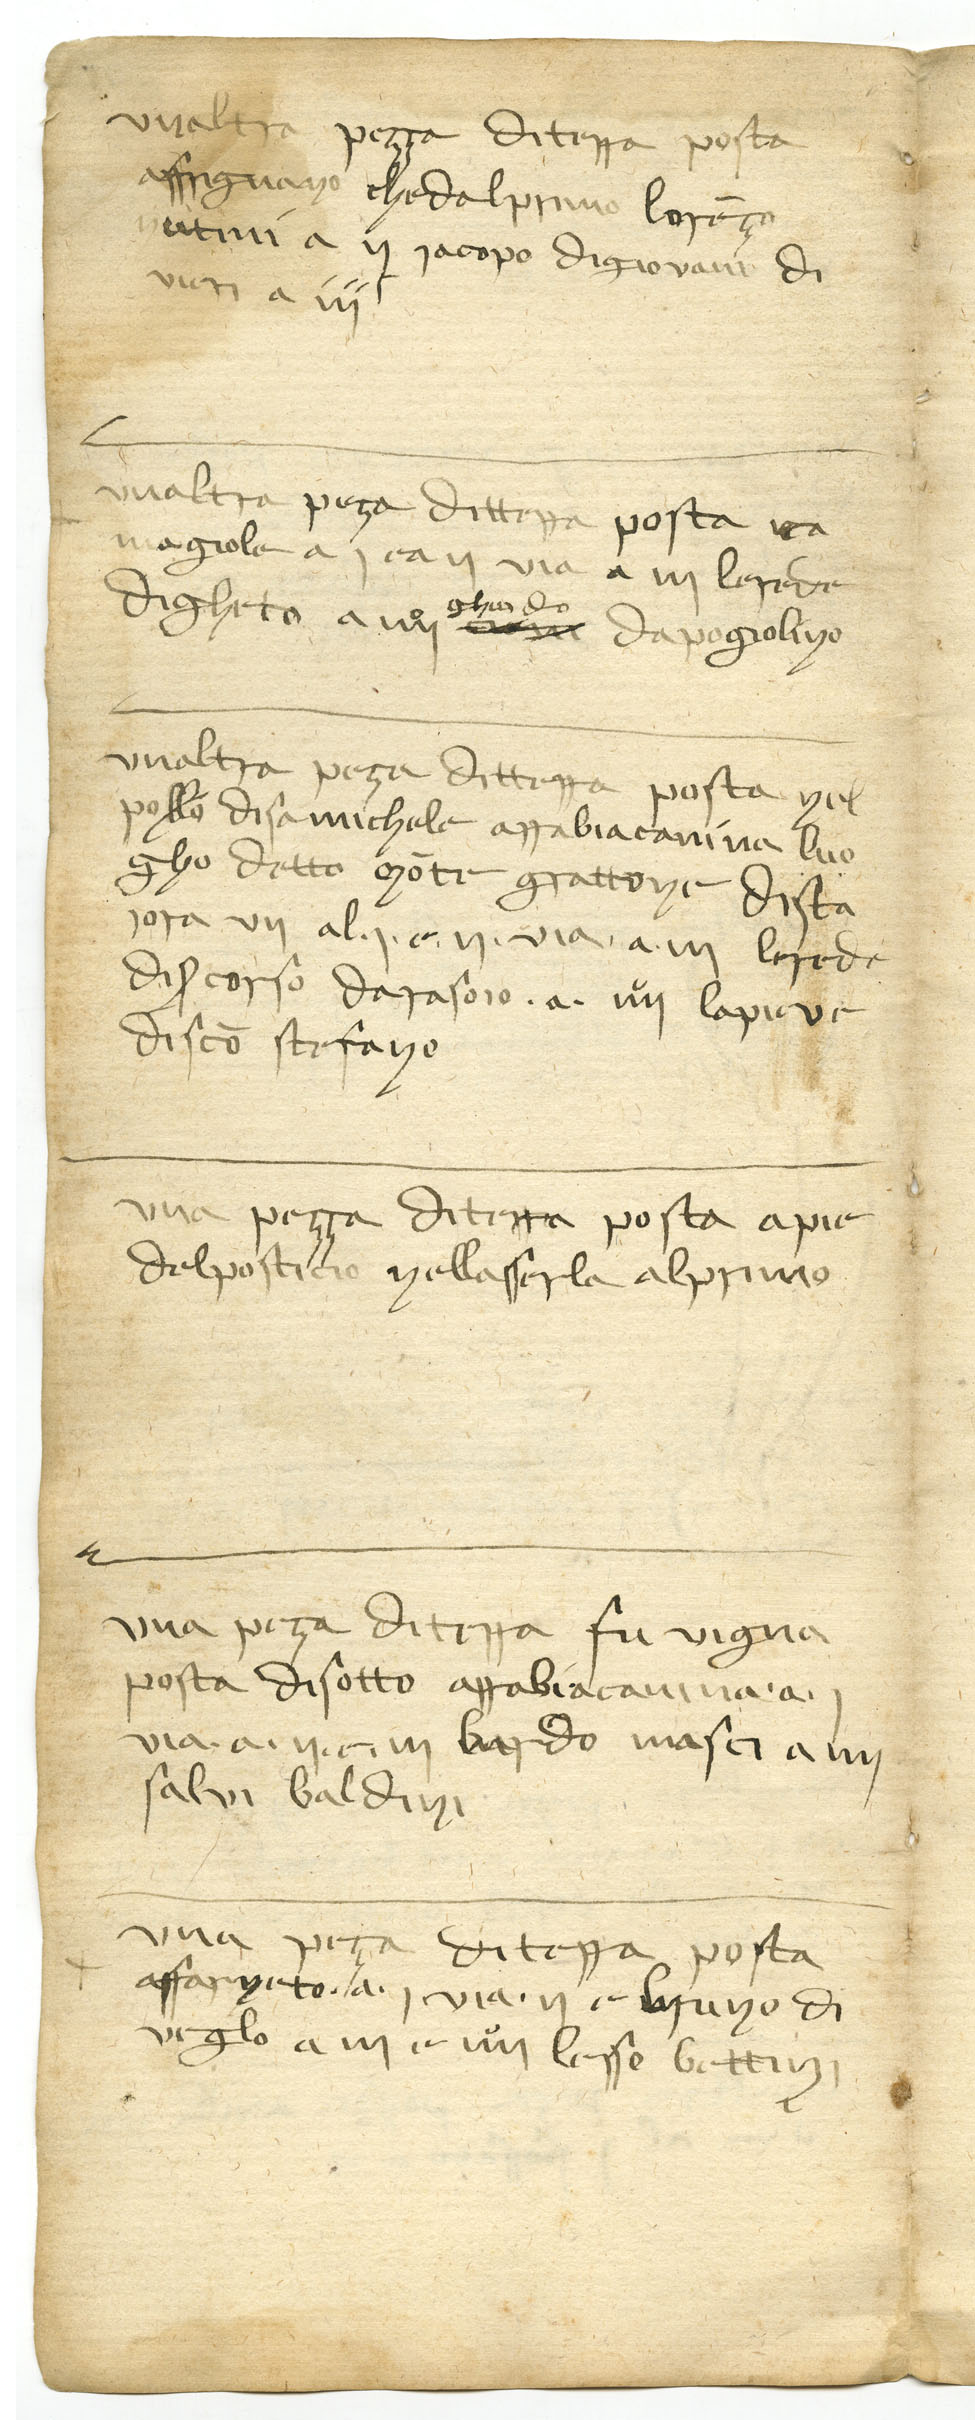 vnaltra pezza diterra posta
affrignano chedalprimo lorēzo
uctini a ij iacopo digiovani di
vieri a iiij
vnaltra peza ditterra posta ica
magiole a j ea ij via a iij lerede
digheto a iiij ghuido dapogiolino
vnaltra peza ditterra posta nel
popolo disamichele arrabiacanina luo
gho detto mōte grattone dista
iora vij al · j · e · ij · via · a · iij lerede
dicorso darasoio · a · iiij lapieve
discō stefano
vna pezza diterra posta apie
delposticio nellasserla alprimo
vna peza diterra fu vigna
posta disotto arrabiacanina · a · j
via · a · ij · e · iij bardo masci a iiij
salvi baldini
vna peza diterra posta
affarneto · a · j · via · ij e bruno di
veglo a iij e iiij lesso bettini